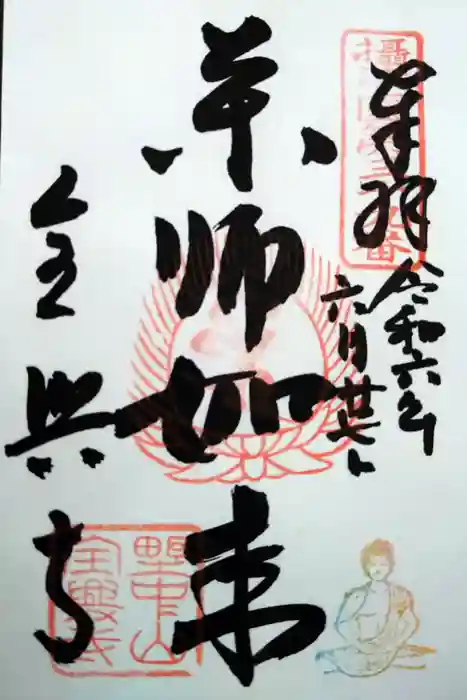 奉拝
令和六年
六月廿七日
薬師如来
全興寺
野中山
全興寺